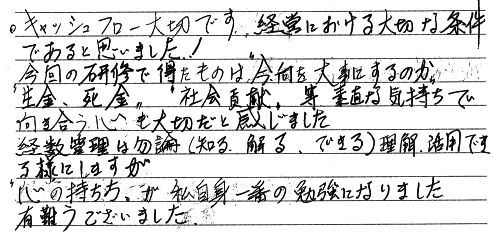 。キャッシュフロー大切です。経営における大切な条件
であると思いました!
今回の研修で得たものは"今何を大事にするのか"
"生金、死金" "社会貢献" 等 素直な気持ちで
向き合う心も大切だと感じました
経数管理は勿論(知る、解る、できる)理解、活用でき
る様にしますが
"心の持ち方"が私自身一番の勉強になりました
有難うございました。